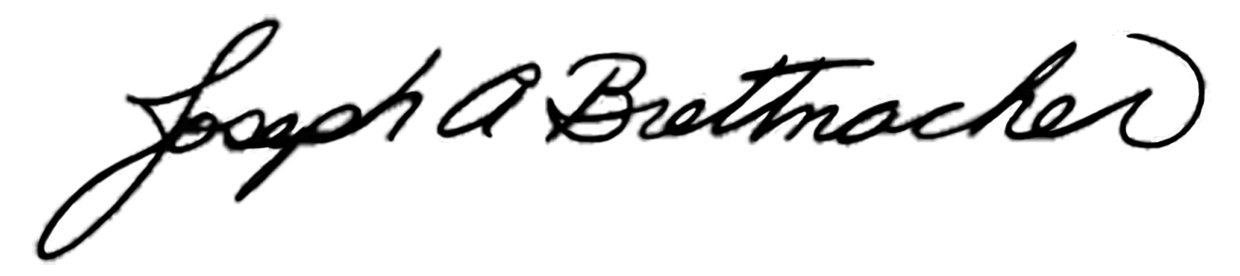 Joseph A Brettmacher